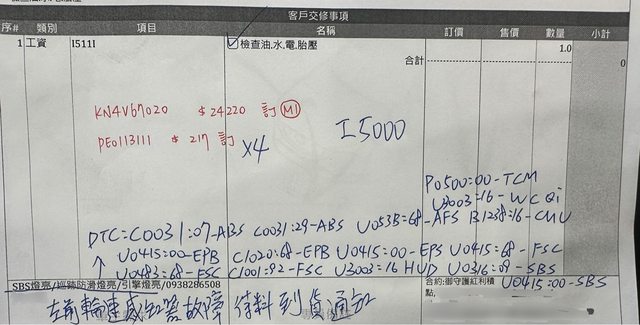 客戶交修事項
序# 類別 項目 名稱 訂價 售價 數量 小計
1 工資 I511I ☑檢查油.水.電.胎壓 1.0
合計 0
KN4V67020 $24220 訂 M1
PE0113111 $217 訂 X4 I5000
P0500:00-TCM
U3003:16-WCQi
DTC=C0031:07-ABS C0031:29-ABS U053B:68-AFS B1238:16-CMU
↑ U0415:00-EPB C1020:68-EPB U0415:00-EPS U0415:68-FSC
U0483:68-FSC C1001:92-FSC U3003:16 HUD U0316:09-SBS
U0415:00-SBS
SBS燈亮/循跡防滑燈亮/引擎燈亮/0938286508
合約:御守護紅利積
點,
左前輪速感知器故障 待料到貨通知